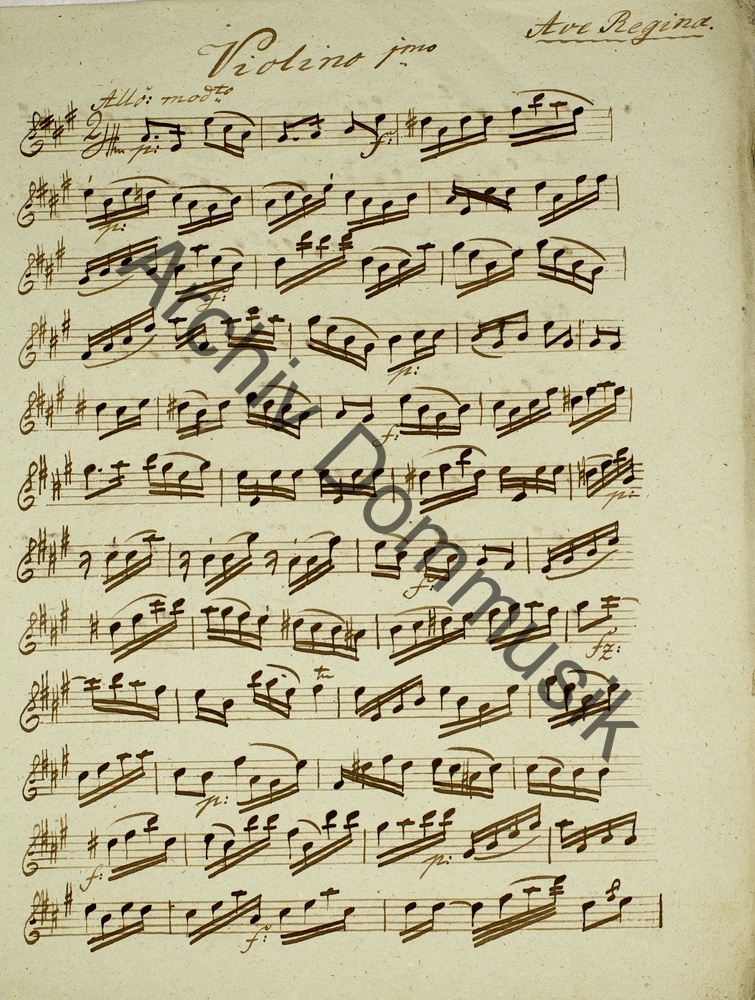 Ave Regina.
Violino jmo
Allo: modto
2
p: f:
p:
f:
p:
f:
p:
f:
fz:
tr
p:
f: p:
f:
Archiv Dommusik